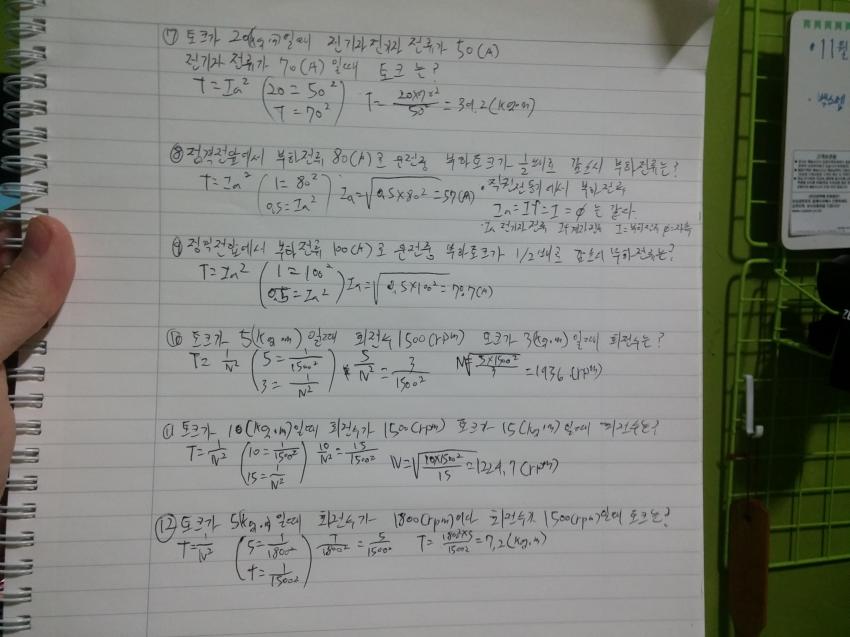 ⑦ 토크가 20(kg.m)일때 전기자전류가 50(A)
전기자 전류가 70(A)일때 토크는?
T=Ia² (20=50² T=70²) T=20×70²/50²=39.2(kg.m)
⑧ 정격전압에서 부하전류 80(A)로 운전중 부하토크가 1/2배로 감소시 부하전류는?
T=Ia² (1=80² 0.5=Ia²) Ia=√0.5×80²=57(A) • 직권전동기에서 부하전류
Ia=If=I=ϕ 는 같다.
Ia 전기자전류 If 계자전류 I=부하전류 ϕ=자속
⑨ 정격전압에서 부하전류 100(A)로 운전중 부하토크가 1/2배로 감소시 부하전류는?
T=Ia² (1=100² 0.5=Ia²) Ia=√0.5×100²=70.7(A)
⑩ 토크가 5(kg.m)일때 회전수 1500(rpm) 토크가 3(kg.m)일때 회전수는?
T=1/N² (5=1/1500² 3=1/N²) 5/N²=3/1500² N=√5×1500²/3=1936(rpm)
⑪ 토크가 10(kg.m)일때 회전수가 1500(rpm) 토크가 15(kg.m)일때 회전수는?
T=1/N² (10=1/1500² 15=1/N²) 10/N²=15/1500² N=√10×1500²/15=1224.7(rpm)
⑫ 토크가 5(kg.m)일때 회전수가 1800(rpm)이다 회전수가 1500(rpm)일때 토크는?
T=1/N² (5=1/1800² T=1/1500²) T/1800²=5/1500² T=1800²×5/1500²=7.2(kg.m)
• 11월